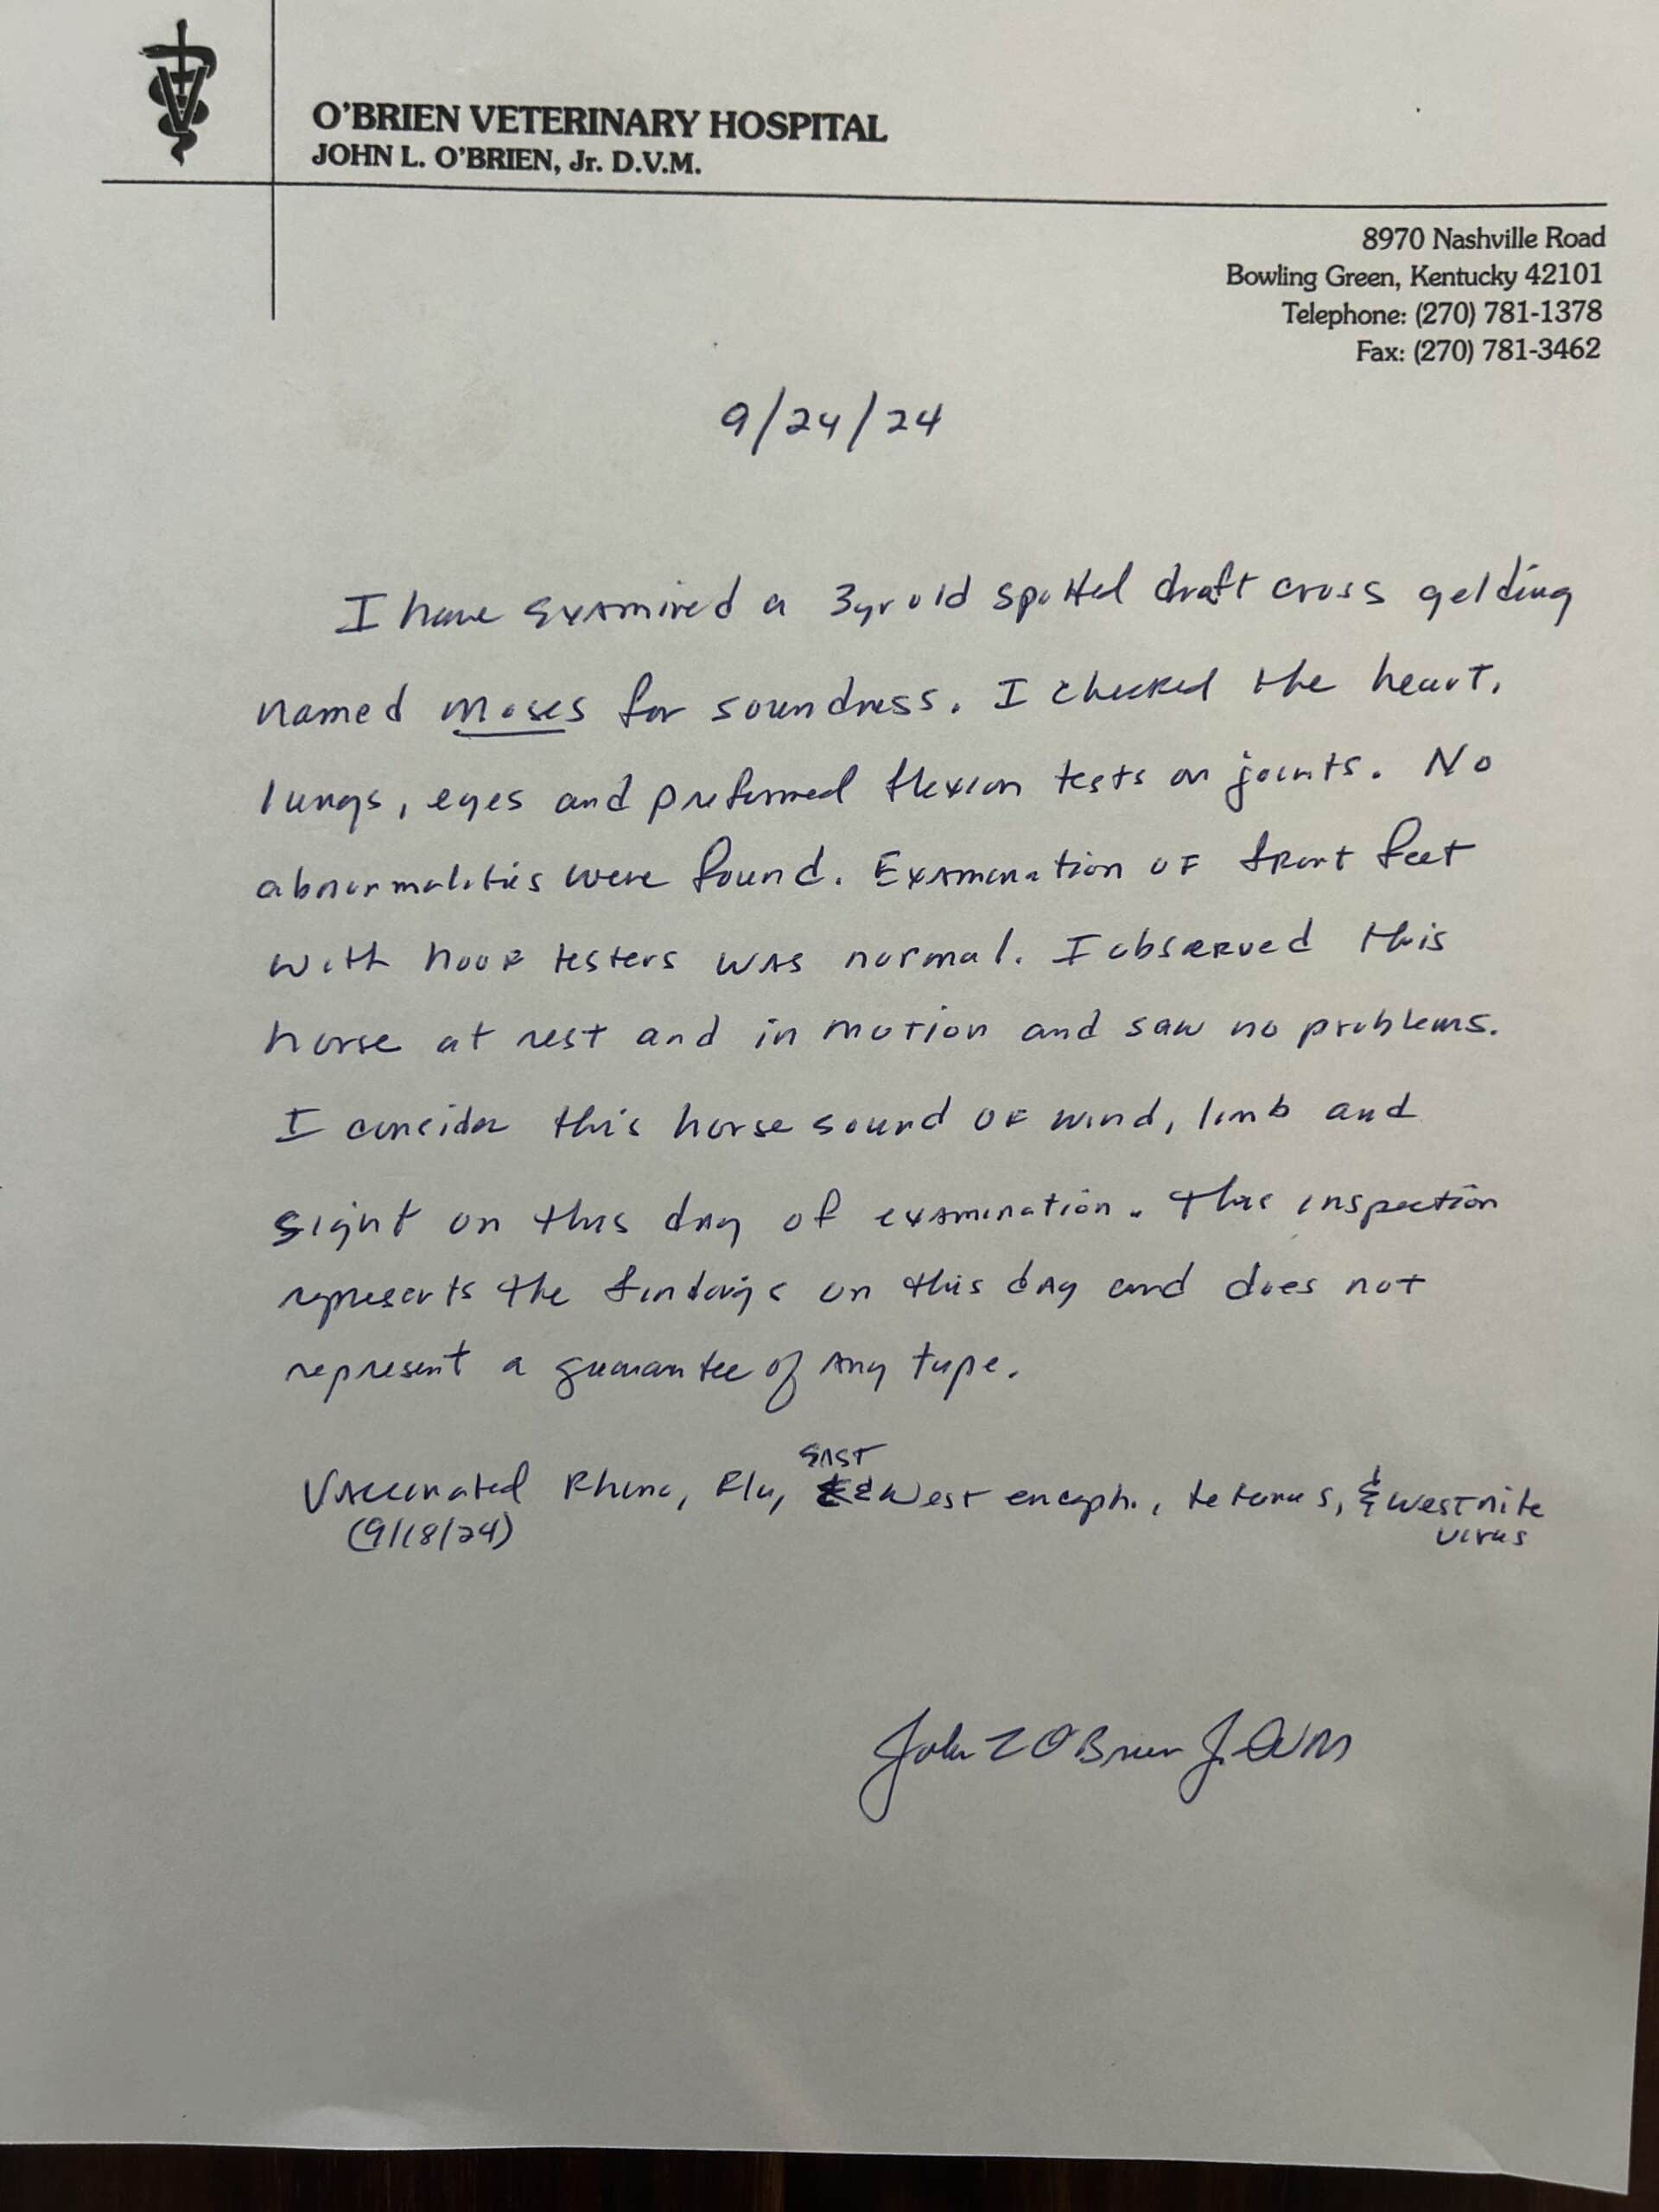 O'BRIEN VETERINARY HOSPITAL
JOHN L. O'BRIEN, Jr. D.V.M.
8970 Nashville Road
Bowling Green, Kentucky 42101
Telephone: (270) 781-1378
Fax: (270) 781-3462
9/24/24
I have examined a 3yr old spotted draft cross gelding
named Moses for soundness. I checked the heart,
lungs, eyes and preformed flexion tests on joints. No
abnormalities were found. Examination of front feet
with hoof testers was normal. I observed this
horse at rest and in motion and saw no problems.
I consider this horse sound of wind, limb and
sight on this day of examination. This inspection
represents the findings on this day and does not
represent a guarantee of any type.
East
Vaccinated Rhino, Flu, & West enceph., tetanus, & West nile
(9/18/24) virus
John L O'Brien Jr. DVM